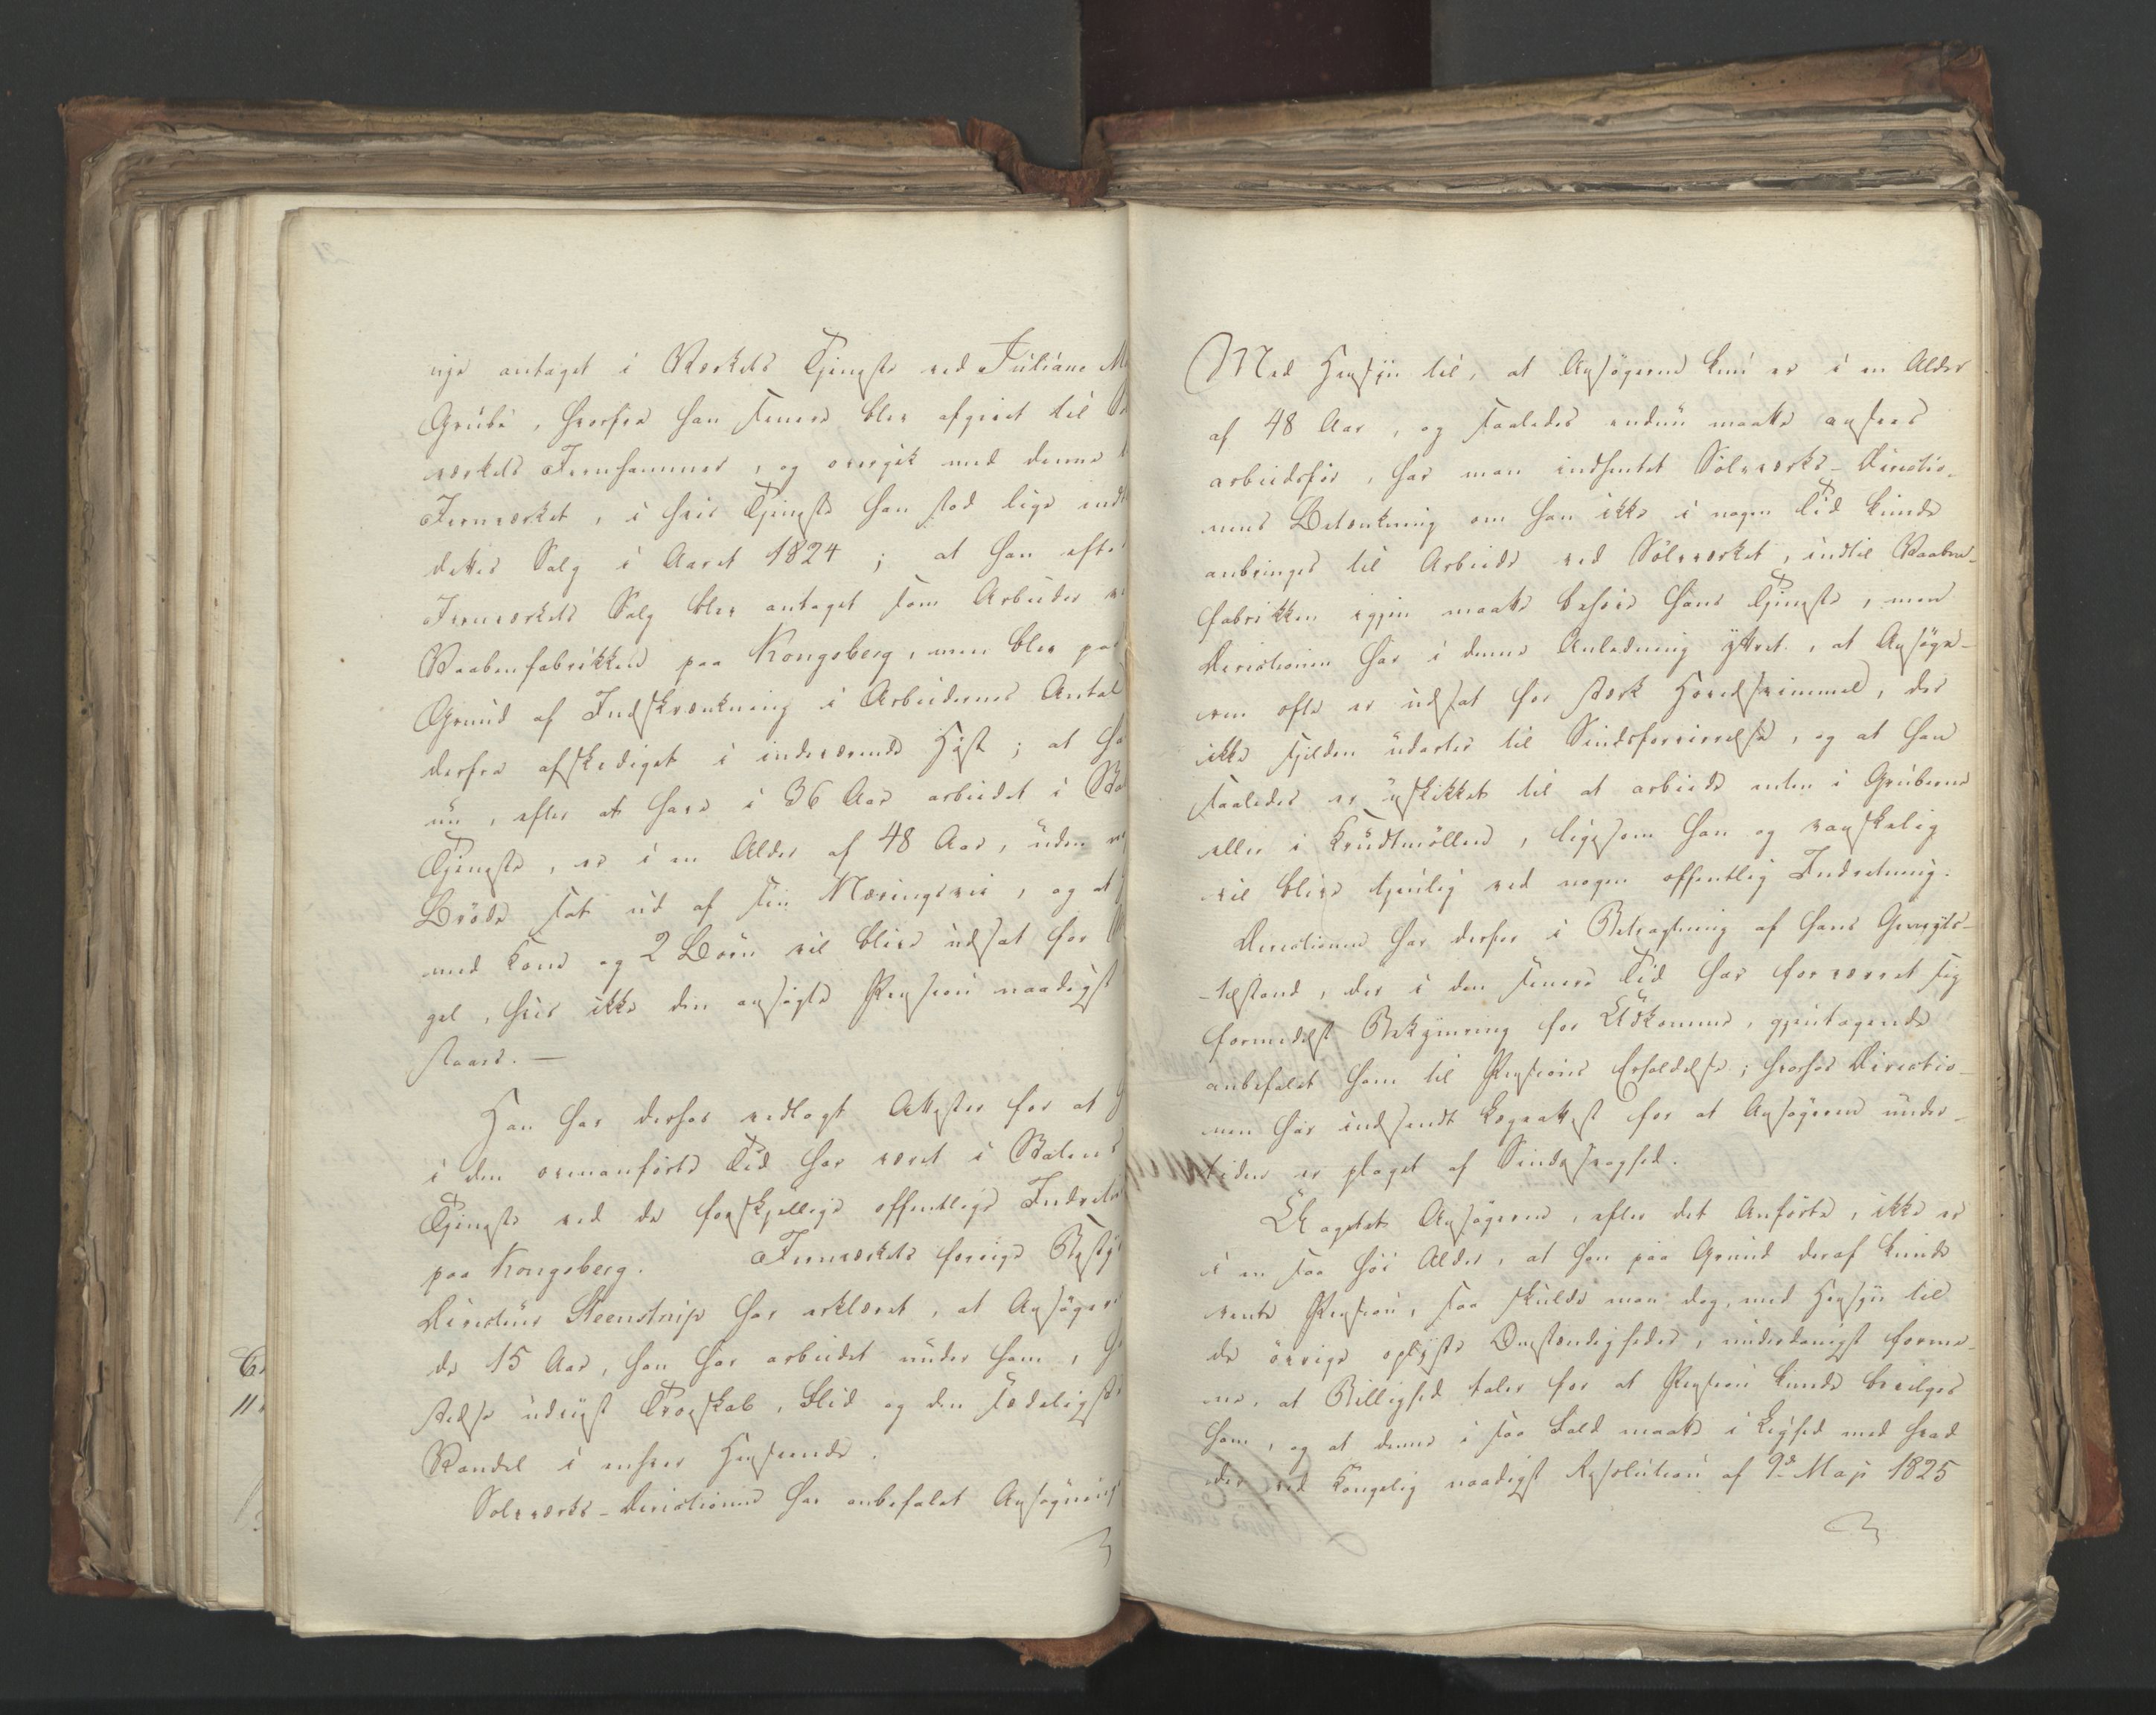 nye antaget i Værkets Tjeneste ved Juliane M
Grube, hvorfra han senere blev afgivet til
værkets Jernhammer, og overgik med denne
Jernværket, i hvis Tjeneste han stod lige ind
dettes Salg i Aaret 1824; at han efte
Jernværkets Salg blev antaget som Arbeider v
Vaabenfabrikken paa Kongsberg, men blev paa
Grund af Indskrænkning i Arbeidernes Antal
derfra afskediget i indeværende Høst; at ha
nu, efter at have i 36 Aar arbeidet i
Tjeneste, er i en Alder af 48 Aar, uden
Brøde sat ud af sin Næringsvei, og at
med Kone og 2 Börn vil blive udsat for
gel, hvis ikke den ansøgte Pension naadigst
staaes. —
Han har derhos vedlagt Attester for at
i den ovenanførte Tid har været i Statens
Tjeneste ved de forskjellige offentlige Indretn
paa Kongsberg. Jernværkets forrige Besty
Directeur Steenstrup har erklæret, at Ansøgere
de 15 Aar, han har arbeidet under ham,
stedse udviist Troskab, Flid og den sædeligste
Vandel i enhver Henseende.
Sølvværks-Directionen har anbefalet Ansøgning
Med Hensyn til, at Ansøgeren kun er i en Alder
af 48 Aar, og saaledes endnu maatte ansees
arbeidsfør, har man indhentet Sølvværks-Directio-
nens Betænkning om han ikke i nogen Tid kunde
anbringes til Arbeide ved Sølvværket, indtil Vaaben-
fabrikken igjen maatte behøve hans Tjeneste, men
Directionen har i denne Anledning yttret, at Ansøge-
ren ofte er udsat for stærk Hovedsvimmel, der
ikke sjelden udarter til Sindsforvirrelse, og at han
saaledes er uskikket til at arbeide enten i Gruberne
eller i Krudtmøllen, ligesom han og vanskelig
vil blive tjenlig ved nogen offentlig Indretning.
Directionen har derfor i Betragtning af hans Gemyts-
-tilstand, der i den senere Tid har forværret sig
formedelst Bekymring for Udkomme, gjentagende
anbefalet ham til Pensions Erholdelse; hvorhos Directio-
nen har indsendt Lægeattest for at Ansøgeren under-
tiden er plaget af Sindssvaghed.
Uagtet Ansøgeren, efter det Anførte, ikke er
i en saa høi Alder, at han paa Grund deraf kunde
vente Pension, saa skulde man dog, med Hensyn til
de øvrige oplyste Omstændigheder, underdanigst forme-
ne, at Billighed taler for at Pension kunde bevilges
ham, og at denne i saa Fald maatte i Lighed med hvad
der ved Kongelig naadigst Resolution af 9de Maji 1825